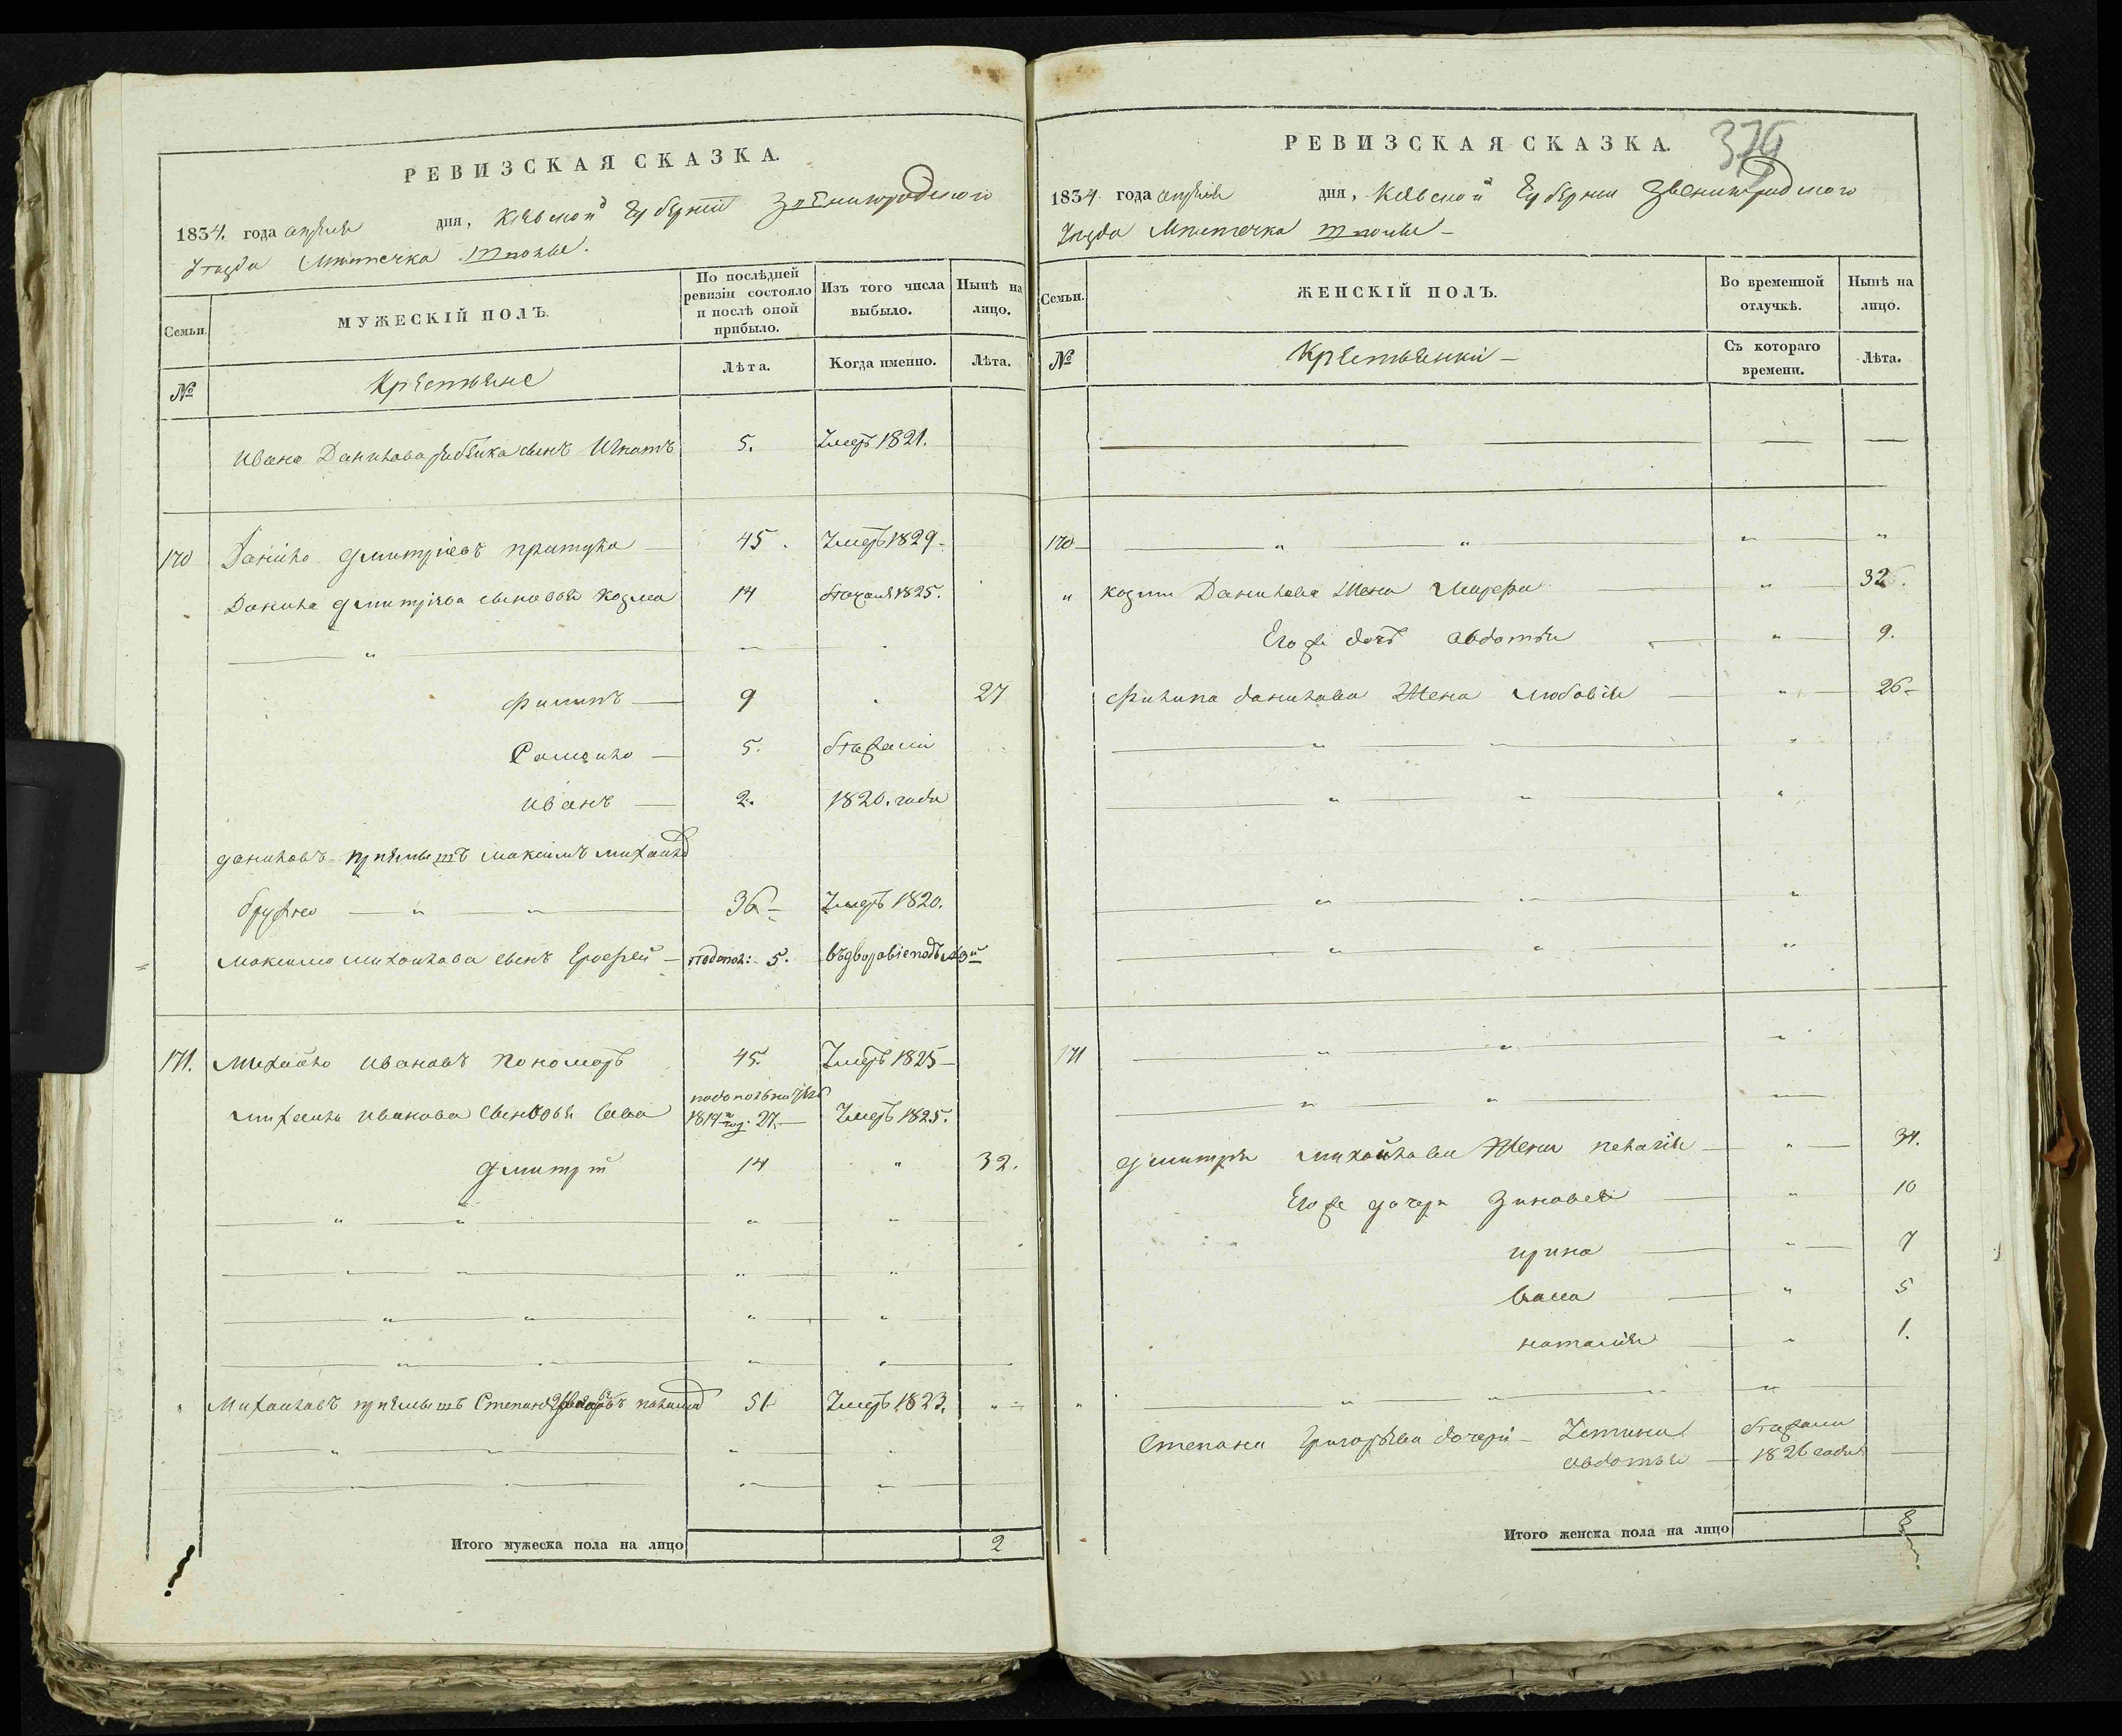 РЕВИЗСКАЯ СКАЗКА.
1834. года апреля дня, Киевской Губернии Звенигородского
Уезда Местечка Шполы.
Семьи.
МУЖЕСКІЙ ПОЛЪ.
По послѣдней ревизіи состояло и послѣ оной прибыло.
Изъ того числа выбыло.
Нынѣ на лицо.
№
Крестьяне
Лѣта.
Когда именно.
Лѣта.
Ивана Данилова сынъ Игнатъ 5. Умеръ 1821.
170 Данило Дмитріевъ притула 45. Умеръ 1829.
Данила Дмитріева сыновья Козма 14 бежалъ 1825.
Филипъ 9 27
Самойло 5. бежали
Иванъ 2. 1820. года
Даниловъ пріемышъ Максимъ Михайло
36 Умеръ 1820.
Максима Михайлова сынъ Ерофей 5.
171. Михайло Ивановъ Пономаръ 45. Умеръ 1825
Михайла Иванова сыновья Сава 1819 27. Умеръ 1825.
Дмитрій 14 " 32.
Михайловъ пріемышъ Степанъ 51 Умеръ 1823.
Итого мужеска пола на лицо 2
РЕВИЗСКАЯ СКАЗКА. 379
1834 года апреля дня, Киевской Губернии Звенигородского
Уезда Местечка Шполы
Семьи.
ЖЕНСКІЙ ПОЛЪ.
Во временной отлучкѣ.
Нынѣ на лицо.
№
Крестьянки
Съ котораго времени.
Лѣта.
170
" Козми Данилова Жена Марфа " 32.
Его же дочь Авдотья " 9.
Филипа Данилова Жена Любовія " 26
171
Дмитрія Михайлова Жена Пелагія " 34.
Его же дочери Зиновея " 10
Ирина " 7
Васса " 5
Наталия " 1.
Степана Григорьева дочери Устина бежали
Авдотья 1826 года
Итого женска пола на лицо 8